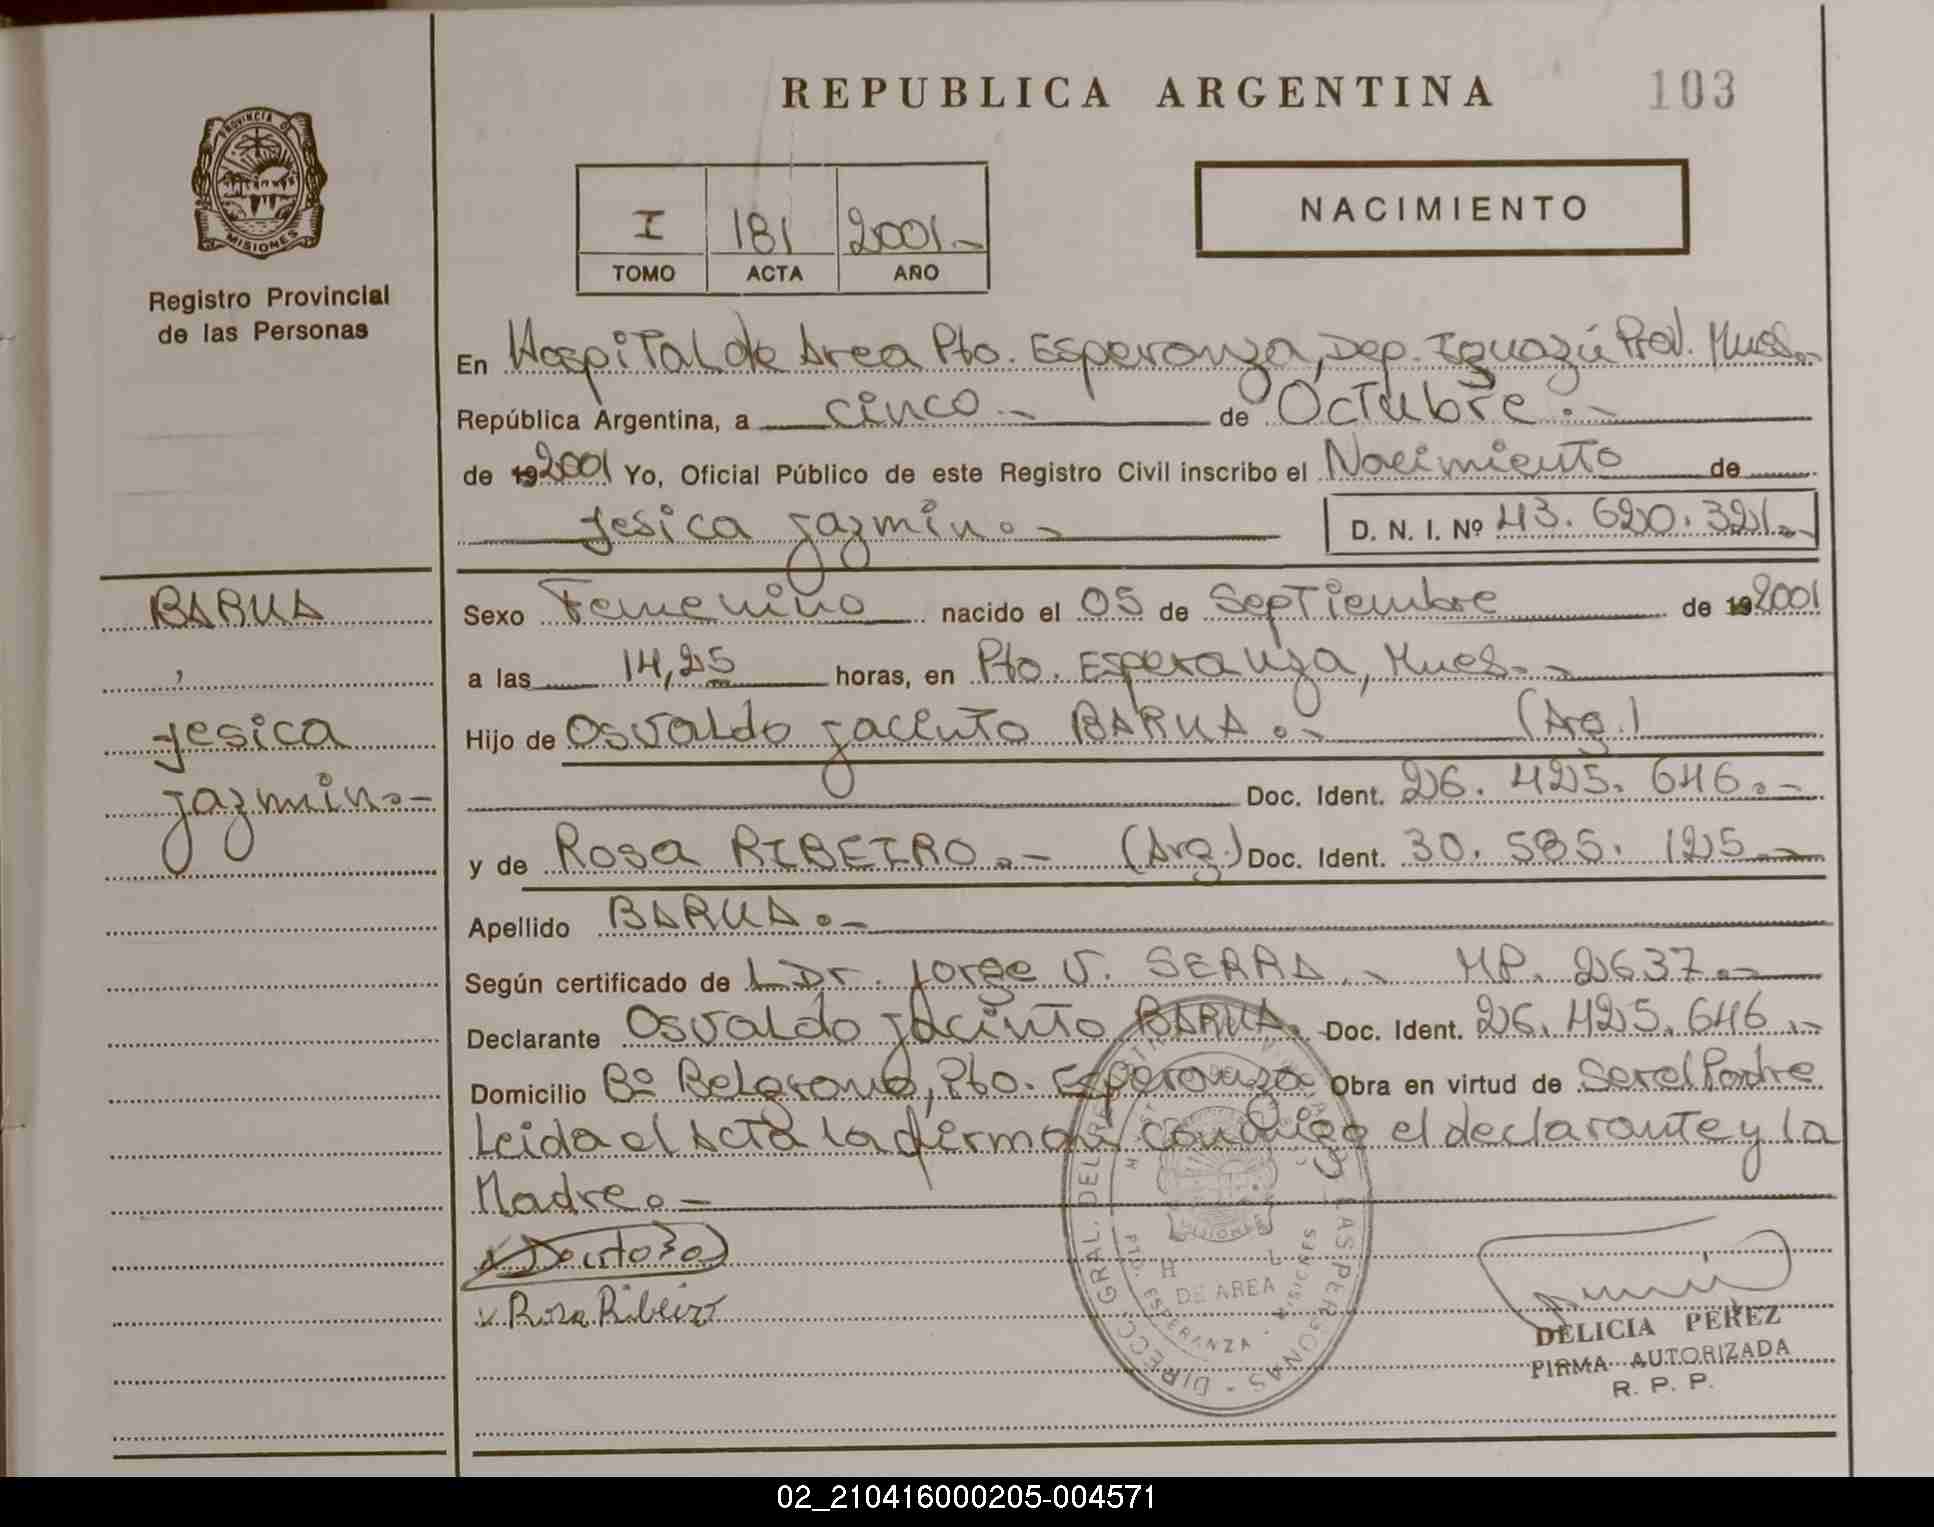 REPUBLICA ARGENTINA
103
PROVINCIA DE
MISIONES
Registro Provincial
de las Personas
I 181 2001.-
TOMO ACTA AÑO
NACIMIENTO
En Hospital de Area Pto. Esperanza, Dep. Iguazú Prov. Mnes.-
República Argentina, a cinco.- de Octubre.-
de 192001 Yo, Oficial Público de este Registro Civil inscribo el Nacimiento de
Jesica Jazmin.-
D. N. I. Nº 43.620.321.-
BARUA
,
Jesica
Jazmin.-
Sexo Femenino nacido el 05 de Septiembre de 192001
a las 14,25 horas, en Pto. Esperanza, Mnes.-
Hijo de Osvaldo Jacinto BARUA.- (Arg.)
Doc. Ident. 26.425.646.-
y de Rosa RIBEIRO.- (Arg.) Doc. Ident. 30.585.125.-
Apellido BARUA.-
Según certificado de Dr. Jorge V. SERRA.- MP. 2637.-
Declarante Osvaldo Jacinto BARUA. Doc. Ident. 26.425.646.-
Domicilio Bº Belgrano, Pto. Esperanza Obra en virtud de Ser el Padre
Leida el Acta la firman conmigo el declarante y la
Madre.-
x Rosa Ribeiro
DIRECC. GRAL. DEL REG. LAS PERSONAS
DE AREA
PTO. ESPERANZA - MISIONES
DELICIA PEREZ
FIRMA AUTORIZADA
R. P. P.
02_210416000205-004571